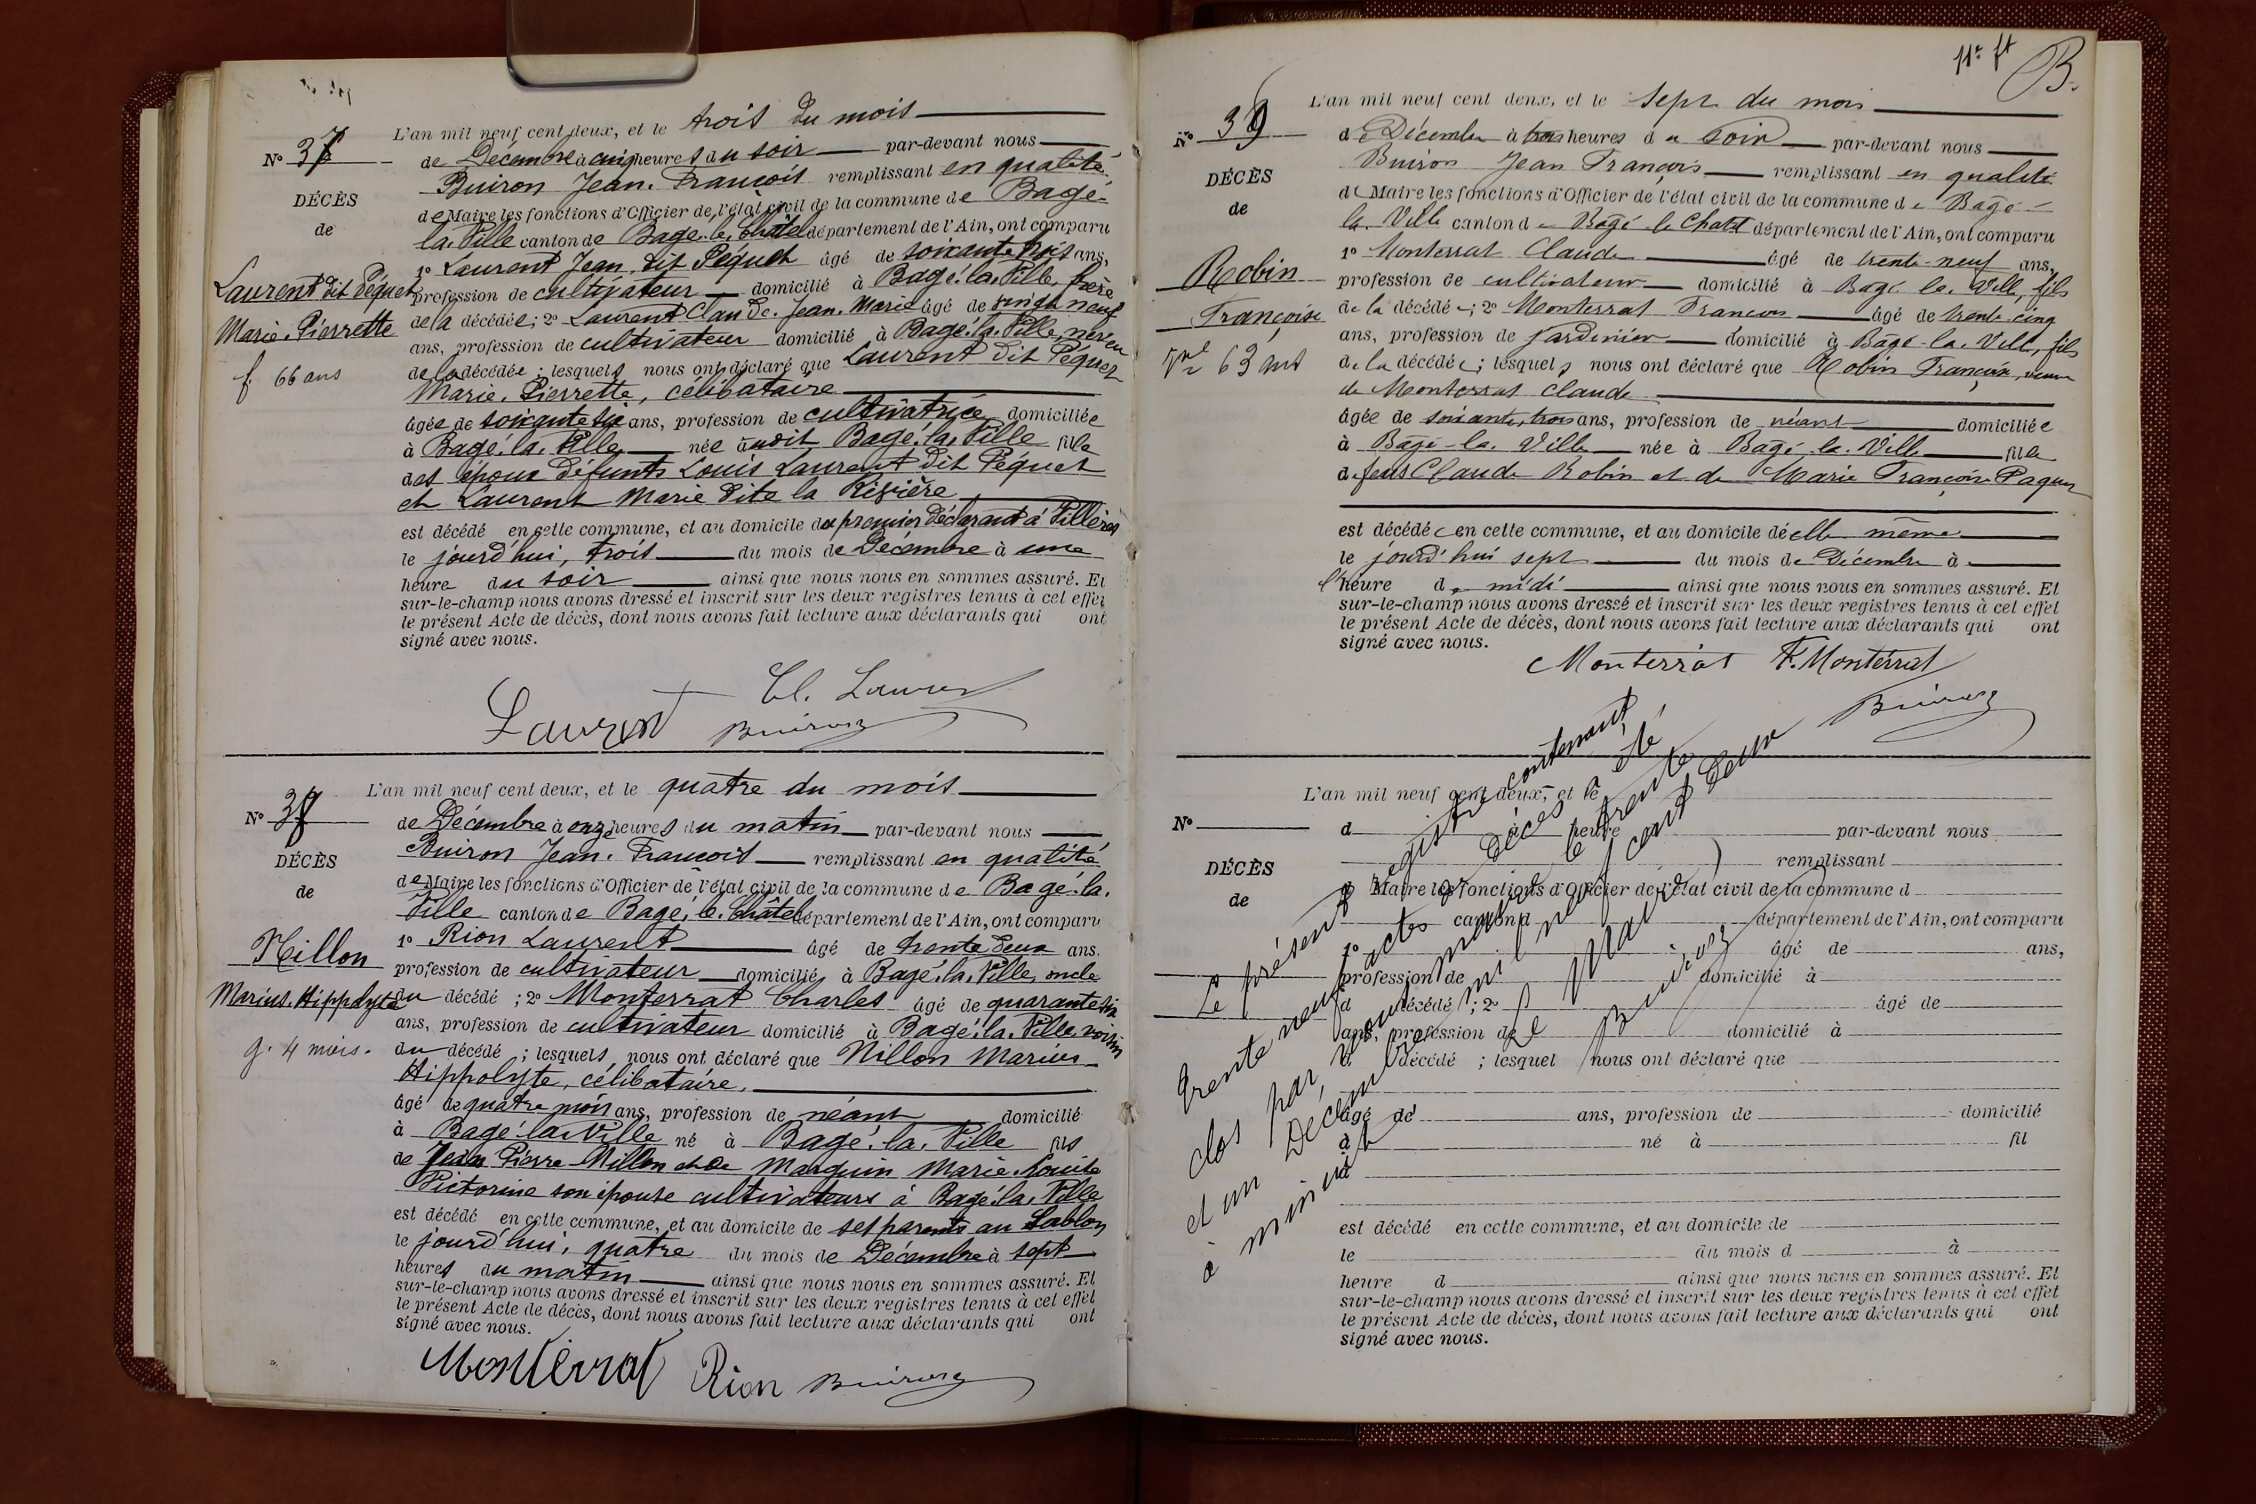 L'an mil neuf cent deux, et le trois du mois
N° 37
de Décembre à cinq heures du soir par-devant nous
Buiron Jean. François remplissant en qualité
DÉCÈS
de Maire les fonctions d'Officier de l'état civil de la commune de Bagé-
de
la. Ville canton de Bagé. le. Châtel département de l'Ain, ont comparu
1° Laurent Jean dit Péquet âgé de soixante trois ans,
Laurent dit Péquet
profession de cultivateur domicilié à Bagé. la. Ville, frère
Marie. Pierrette
de la décédée; 2° Laurent Claude. Jean. Marie âgé de vingt neuf
ans, profession de cultivateur domicilié à Bagé. la. Ville, neveu
f. 66 ans
de la décédée; lesquels nous ont déclaré que Laurent dit Péquet
Marie. Pierrette, célibataire
âgée de soixante six ans, profession de cultivatrice domiciliée
à Bagé. la. Ville née audit Bagé. la. Ville fille
des époux défunts Louis Laurent dit Péquet
et Laurent Marie dite la Rivière
est décédé en cette commune, et au domicile du premier déclarant à
le jourd'hui, trois du mois de Décembre à une
heure du soir ainsi que nous nous en sommes assuré. Et
sur-le-champ nous avons dressé et inscrit sur les deux registres tenus à cet effet
le présent Acte de décès, dont nous avons fait lecture aux déclarants qui ont
signé avec nous.
Laurent Cl. Laurent
Buiron
L'an mil neuf cent deux, et le quatre du mois
N° 38
de Décembre à onze heures du matin par-devant nous
Buiron Jean. François remplissant en qualité
DÉCÈS
de Maire les fonctions d'Officier de l'état civil de la commune de Bagé. la.
de
Ville canton de Bagé. le. Châtel département de l'Ain, ont comparu
1° Rion Laurent âgé de trente deux ans.
Nillon
profession de cultivateur domicilié à Bagé. la. Ville, oncle
Marius. Hippolyte
du décédé; 2° Monterrat Charles âgé de quarante six
ans, profession de cultivateur domicilié à Bagé. la. Ville, voisin
g. 4 mois.
du décédé; lesquels nous ont déclaré que Nillon Marius
Hippolyte, célibataire.
âgé de quatre mois ans, profession de néant domicilié
à Bagé. la. Ville né à Bagé. la. Ville fils
de Jean Pierre Nillon et de Marie Louise
Victorine son épouse cultivateurs à Bagé. la. Ville
est décédé en cette commune, et au domicile de ses parents au Sablon
le jourd'hui, quatre du mois de Décembre à sept
heures du matin ainsi que nous nous en sommes assuré. Et
sur-le-champ nous avons dressé et inscrit sur les deux registres tenus à cet effet
le présent Acte de décès, dont nous avons fait lecture aux déclarants qui ont
signé avec nous.
Monterrat Rion Buiron
B.
L'an mil neuf cent deux, et le sept du mois
N° 39
de Décembre à trois heures du soir par-devant nous
Buiron Jean François remplissant en qualité
DÉCÈS
de Maire les fonctions d'Officier de l'état civil de la commune de Bagé-
de
la. Ville canton de Bagé-le Chatel département de l'Ain, ont comparu
1° Monterrat Claude âgé de trente-neuf ans,
Robin
profession de cultivateur domicilié à Bagé la. Ville, fils
Françoise
de la décédée; 2° Monterrat François âgé de trente cinq
ans, profession de jardinier domicilié à Bagé-la. Ville, fils
Vve 63 ans
de la décédée; lesquels nous ont déclaré que Robin Françoise, veuve
de Monterrat Claude
âgée de soixante, trois ans, profession de néant domiciliée
à Bagé-la. Ville née à Bagé-la. Ville fille
de feus Claude Robin et de Marie Françoise
est décédée en cette commune, et au domicile d'elle même
le jourd'hui sept du mois de Décembre à
l'heure de midi ainsi que nous nous en sommes assuré. Et
sur-le-champ nous avons dressé et inscrit sur les deux registres tenus à cet effet
le présent Acte de décès, dont nous avons fait lecture aux déclarants qui ont
signé avec nous.
Monterrat F. Monterrat
Buiron
L'an mil neuf cent deux, et le
N°
d à heure par-devant nous
remplissant
DÉCÈS
d Maire les fonctions d'Officier de l'état civil de la commune d
de
canton d département de l'Ain, ont comparu
1° âgé de ans,
profession de domicilié à
d décédé; 2° âgé de
ans, profession de domicilié à
d décédé; lesquel nous ont déclaré que
âgé de ans, profession de domicilié
à né à fil
d
est décédé en cette commune, et au domicile de
le du mois d à
heure d ainsi que nous nous en sommes assuré. Et
sur-le-champ nous avons dressé et inscrit sur les deux registres tenus à cet effet
le présent Acte de décès, dont nous avons fait lecture aux déclarants qui ont
signé avec nous.
Le présent registre contenant
trente neuf actes de décès a été
clos par nous maire le trente
et un Décembre mil neuf cent deux
à minuit
le Maire
Buiron